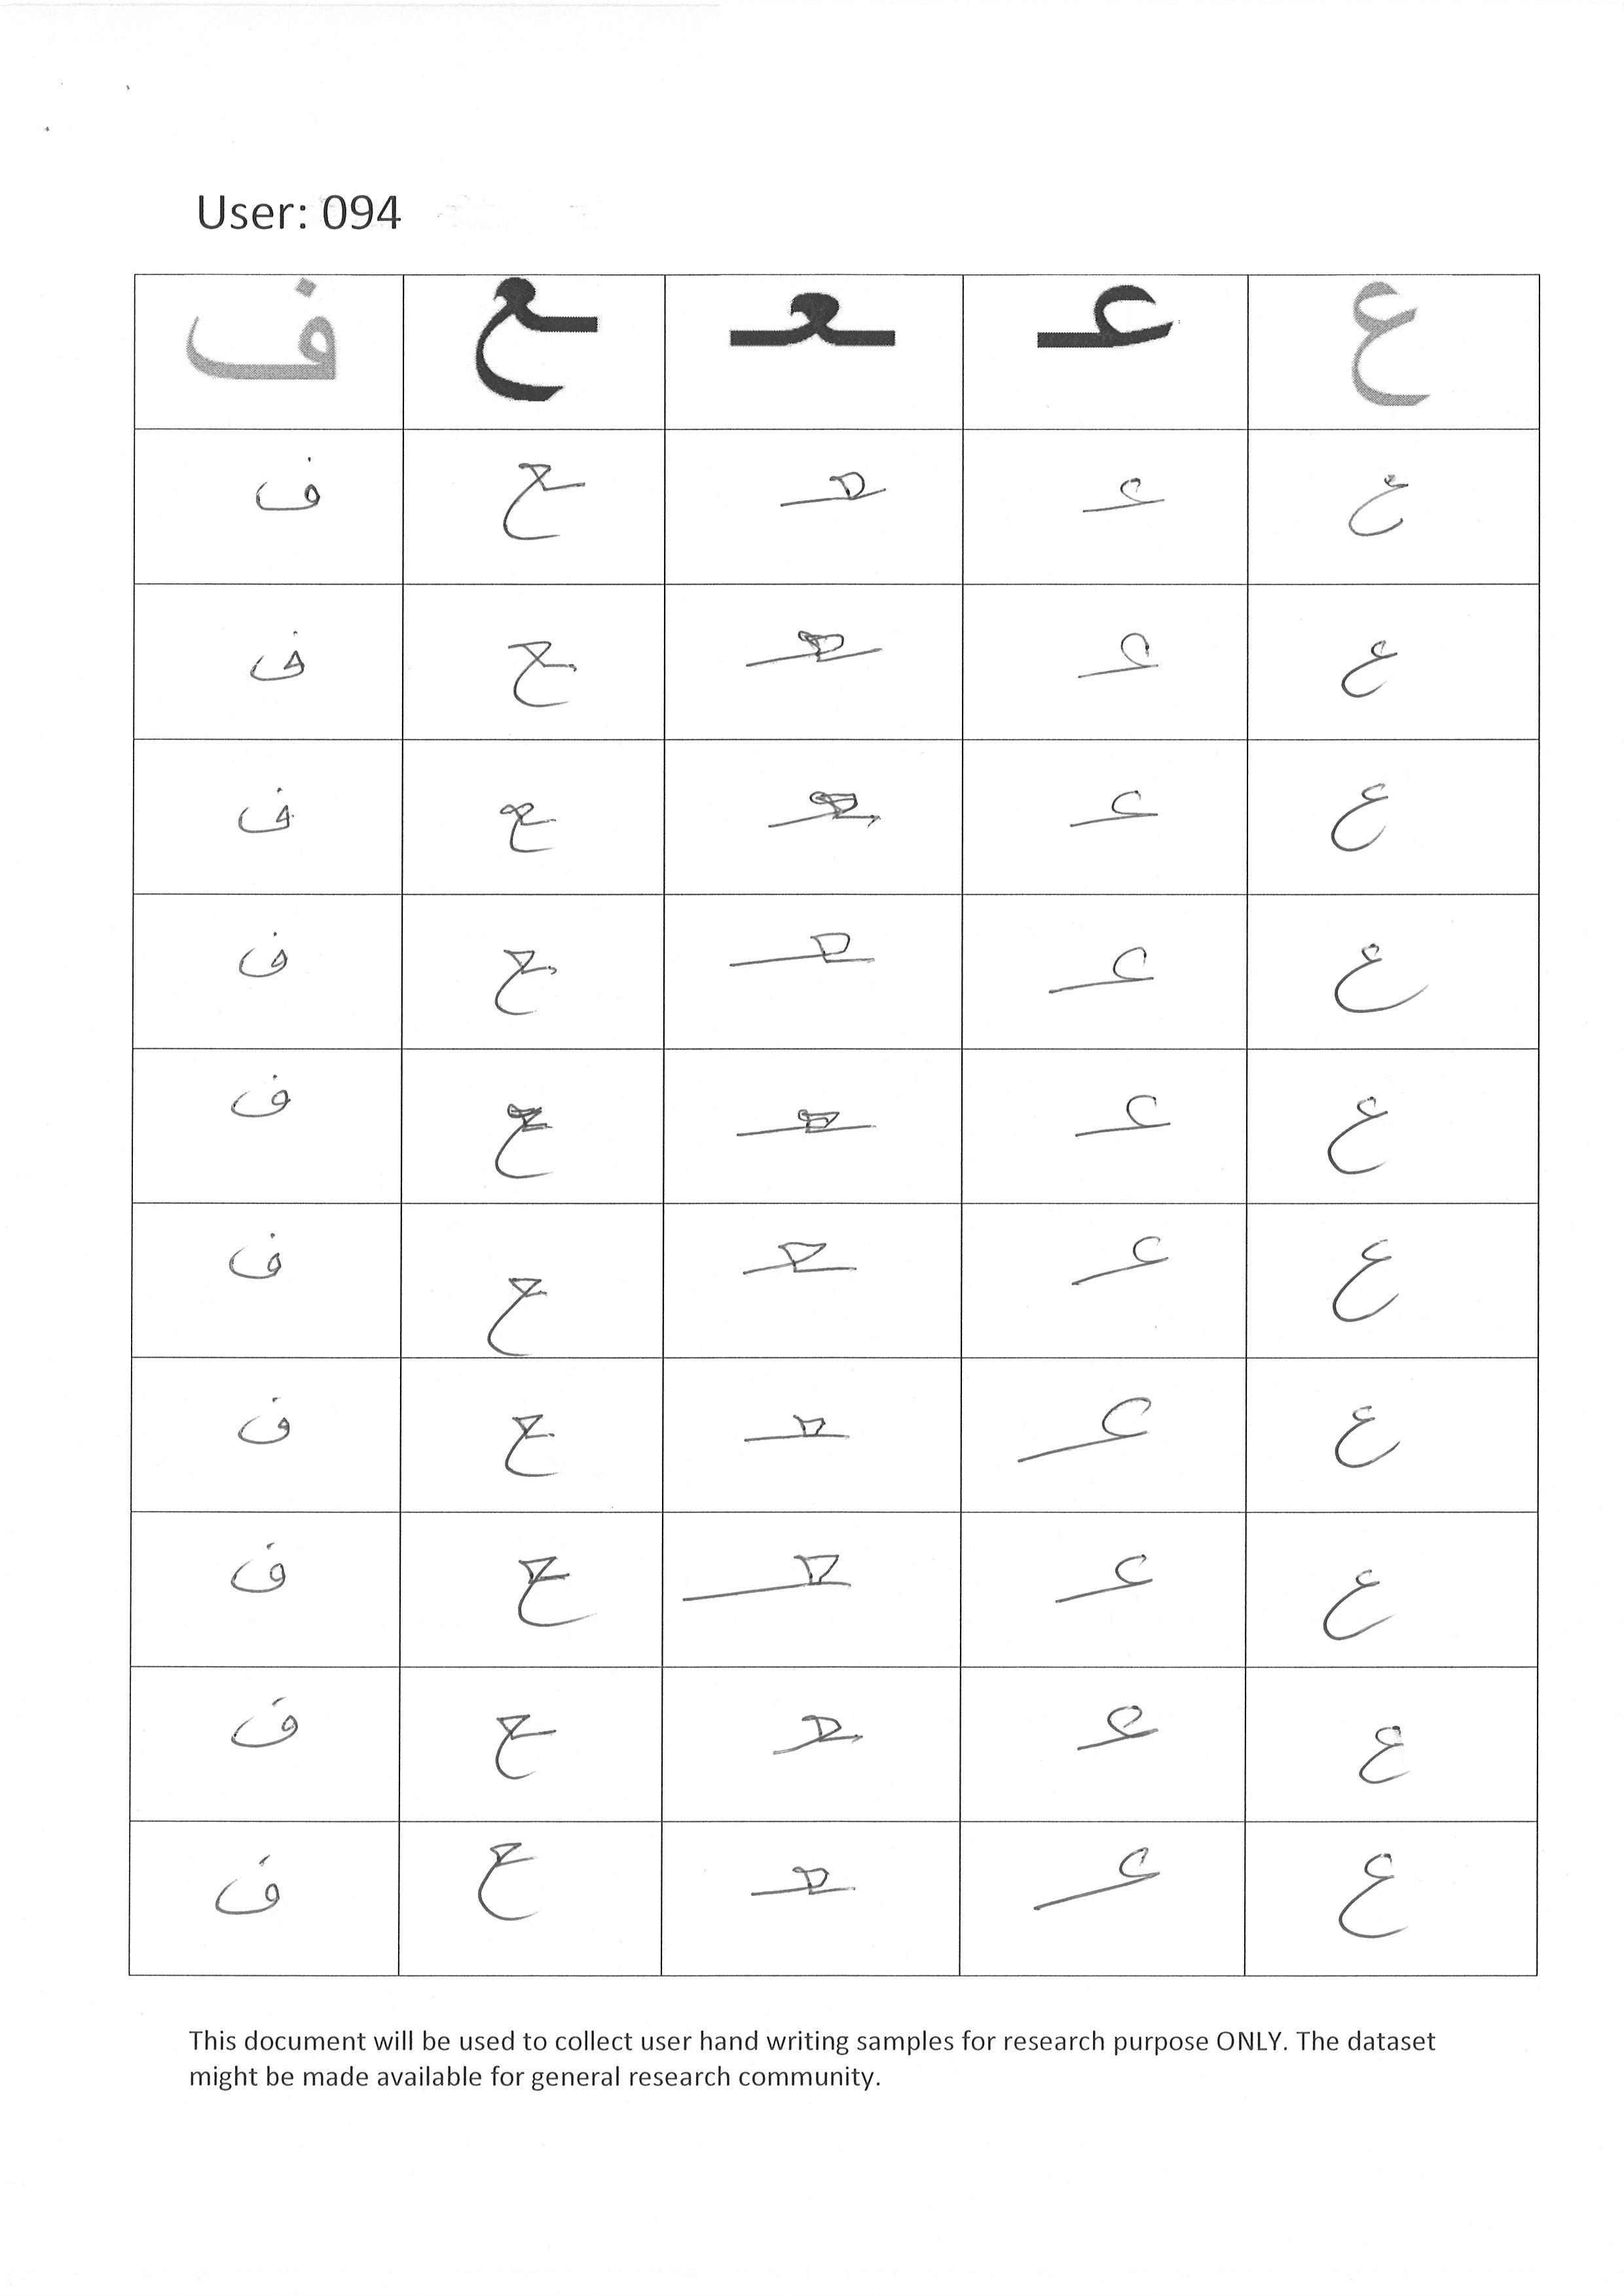 User: 094
ع عـ ـعـ ـع ف
ع عـ ـعـ ـع ف
ع عـ ـعـ ـع ف
ع عـ ـعـ ـع ف
ع عـ ـعـ ـع ف
ع عـ ـعـ ـع ف
ع عـ ـعـ ـع ف
ع عـ ـعـ ـع ف
ع عـ ـعـ ـع ف
ع عـ ـعـ ـع ف
ع عـ ـعـ ـع ف
This document will be used to collect user hand writing samples for research purpose ONLY. The dataset
might be made available for general research community.